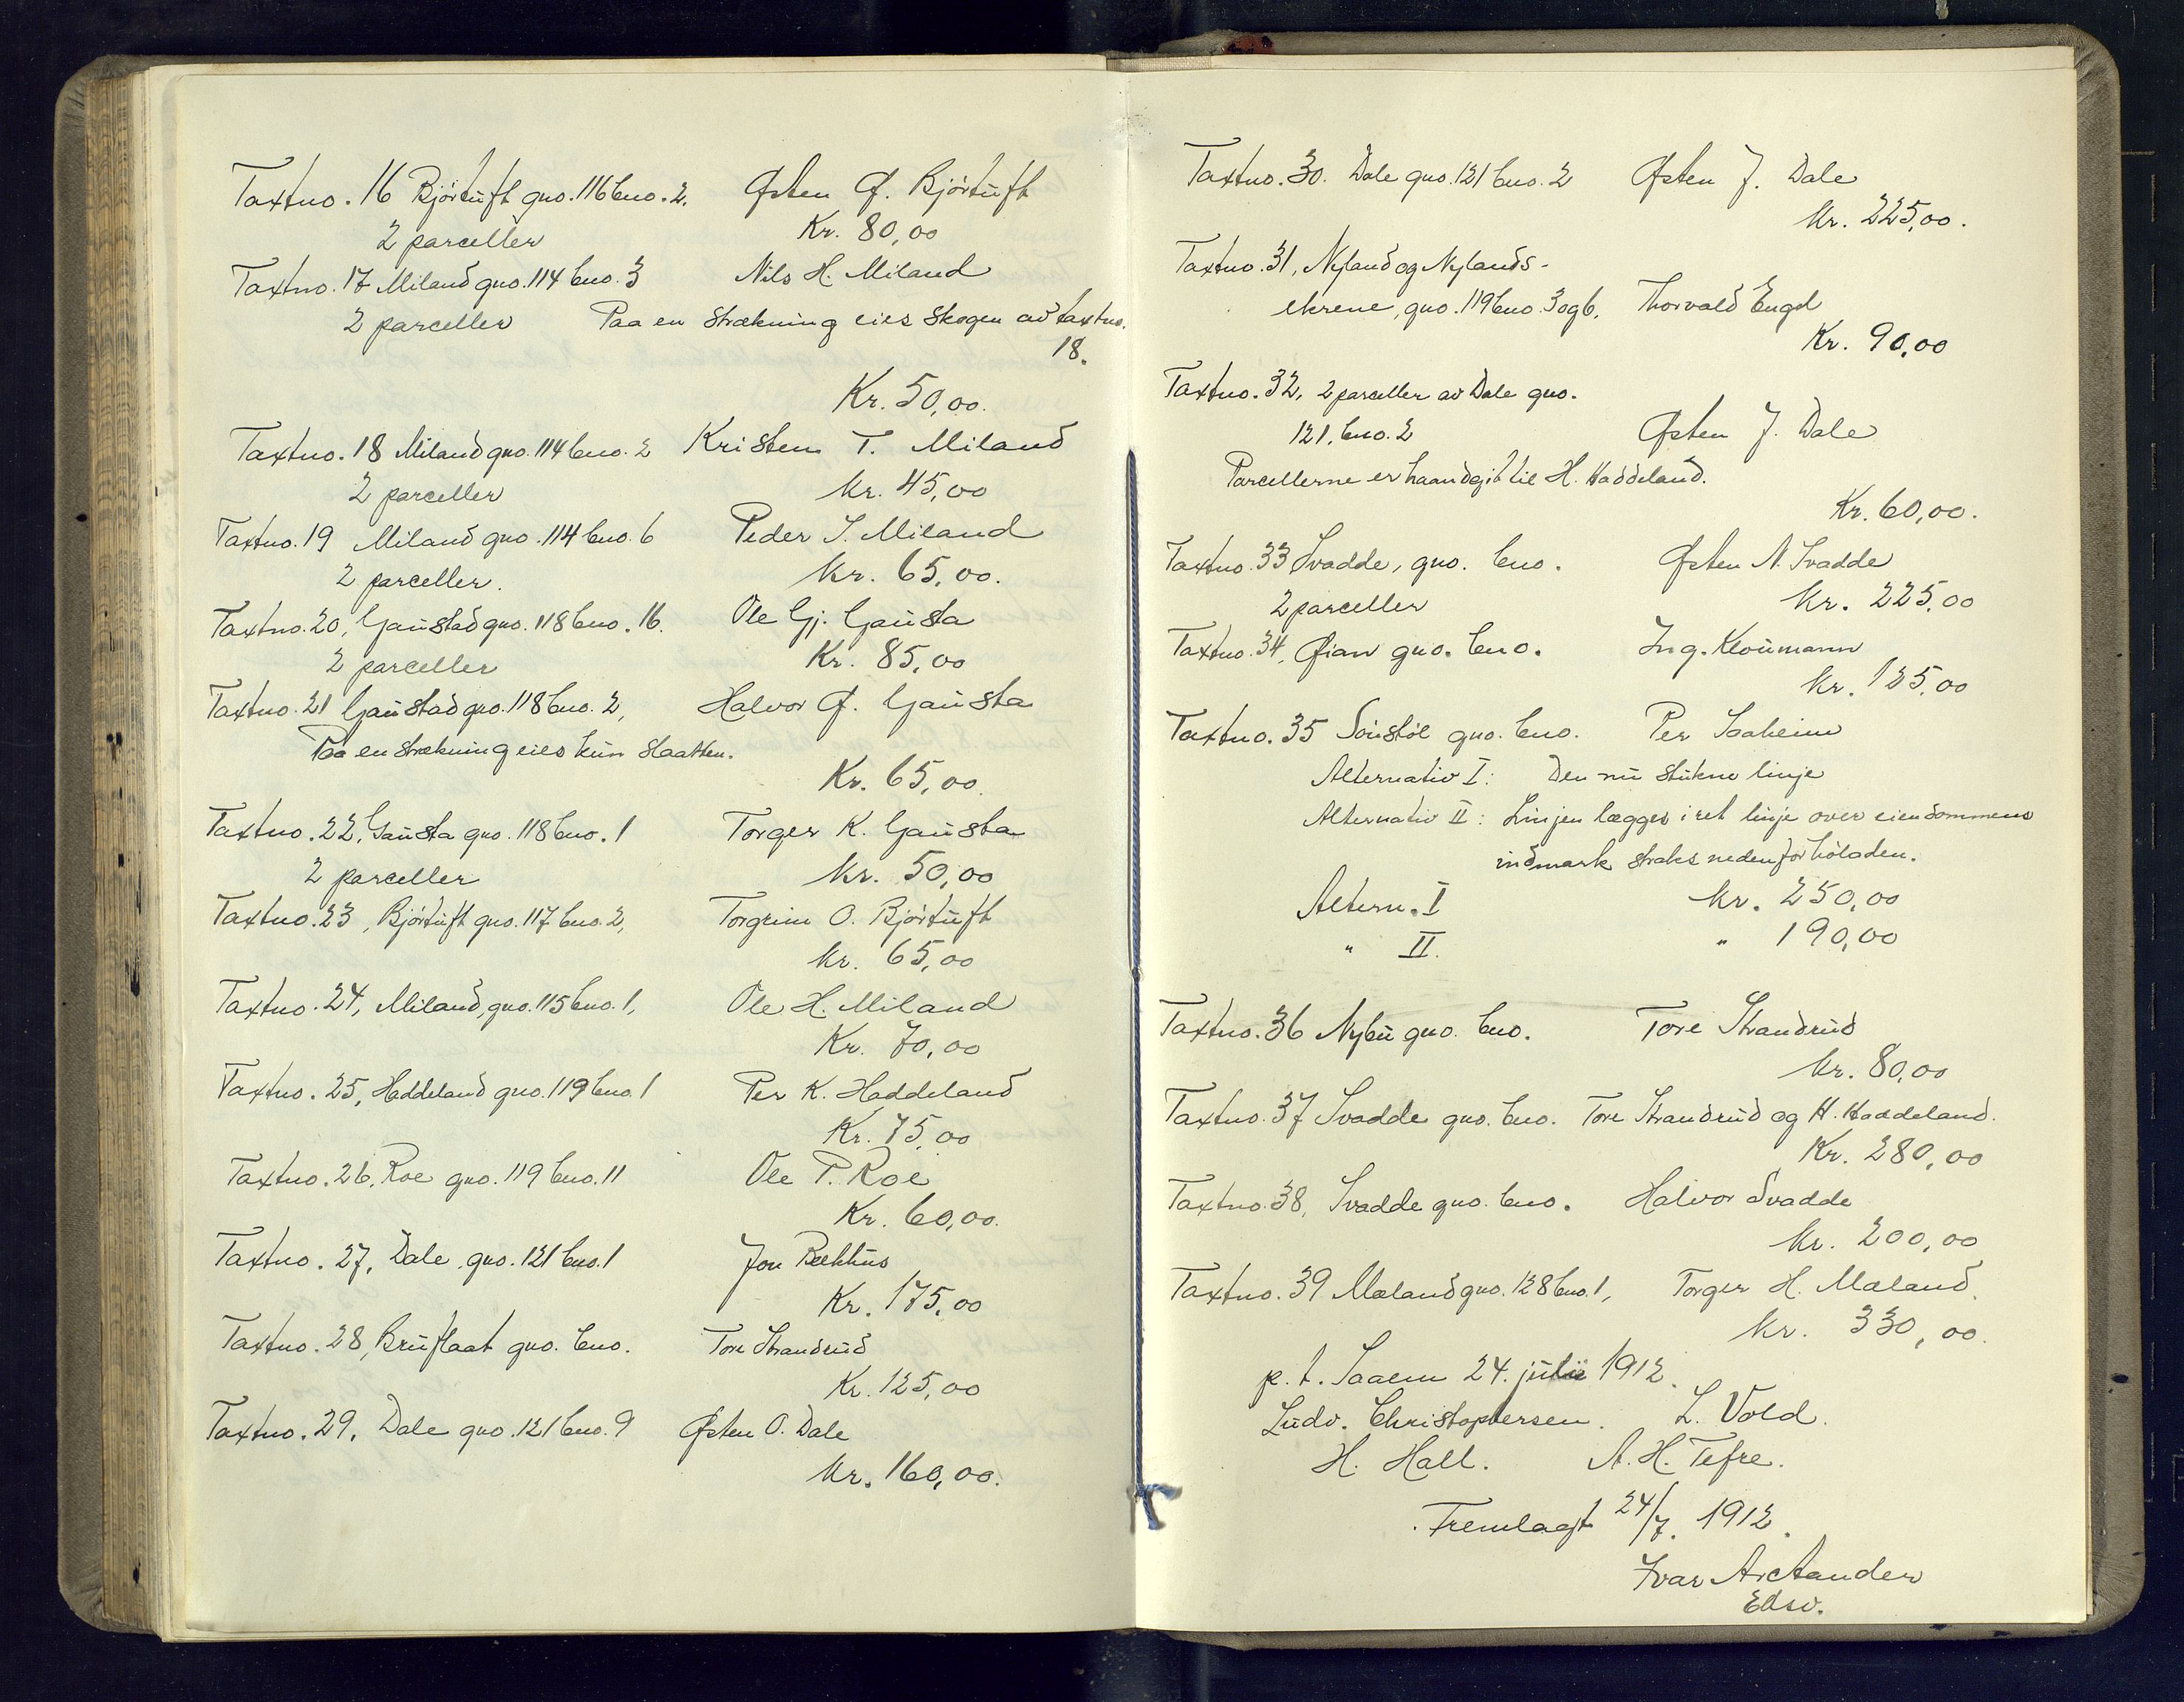 Taxtno. 16 Bjørtuft gno. 116 bno. 2. Østen Ø. Bjørtuft
2 parceller Kr. 80,00
Taxtno. 17 Miland gno. 114 bno. 3 Nils H. Miland
2 parceller Paa en strækning eies skogen av taxtno.
18.
Kr. 50,00.
Taxtno. 18 Miland gno. 114 bno. 2 Kristen T. Miland
2 parceller Kr. 45,00
Taxtno. 19 Miland gno. 114 bno. 6 Peder S. Miland
2 parceller. Kr. 65,00.
Taxtno. 20, Gaustad gno. 118 bno. 16. Ole Gj. Gausta
2 parceller Kr. 85,00
Taxtno. 21 Gaustad gno. 118 bno. 2, Halvor Ø. Gausta
Paa en strækning eies kun slaatten.
Kr. 65,00.
Taxtno. 22, Gausta gno. 118 bno. 1 Torger K. Gausta
2 parceller Kr. 50,00
Taxtno. 23, Bjørtuft gno. 117 bno. 2, Torgrim O. Bjørtuft
Kr. 65,00
Taxtno. 24, Miland, gno. 115 bno. 1, Ole H. Miland
Kr. 70,00
Taxtno. 25, Haddeland gno. 119 bno. 1 Per K. Haddeland
Kr. 75,00
Taxtno. 26, Roe gno. 119 bno. 11 Ole P. Roe
Kr. 60,00.
Taxtno. 27, Dale gno. 121 bno. 1 Jon Bækhus
Kr. 175,00
Taxtno. 28, Bruflaat gno. bno. Tore Strandrud
Kr. 125,00
Taxtno. 29, Dale gno. 121 bno. 9 Østen O. Dale
Kr. 160,00.
Taxtno. 30. Dale gno. 121 bno. 2 Østen J. Dale
Kr. 225,00.
Taxtno. 31, Nyland og Nylands-
ekrene, gno. 119 bno. 3 og 6. Thorvald Engel
Kr. 90,00
Taxtno. 32, 2 parceller av Dale gno.
121, bno. 2 Østen J. Dale
Parcellerne er haandgit til H. Haddeland.
Kr. 60,00.
Taxtno. 33 Svadde, gno. bno. Østen N. Svadde
2 parceller Kr. 225,00
Taxtno. 34, Øian gno. bno. Ing. Kloumann
Kr. 125,00
Taxtno. 35 Sønstøl gno. bno. Per Saaheim
Alternativ I: Den nu stukne linje
Alternativ II: Linjen lægges i ret linje over eiendommens
indmark straks nedenfor høladen.
Altern. I Kr. 250,00
" II. " 190,00
Taxtno. 36 Nybu gno. bno. Tore Strandrud
Kr. 80,00
Taxtno. 37 Svadde gno. bno. Tore Strandrud og H. Haddeland.
Kr. 280,00
Taxtno. 38, Svadde gno. bno. Halvor Svadde
Kr. 200,00
Taxtno. 39 Mæland gno. 128 bno. 1, Torger H. Mæland.
Kr. 330,00.
p. t. Saaem 24. juli 1912.
Ludv. Christophersen. L. Vold.
H. Hall. A. H. Tefre.
Fremlagt 24/7. 1912.
Ivar Arctander
Edsv.